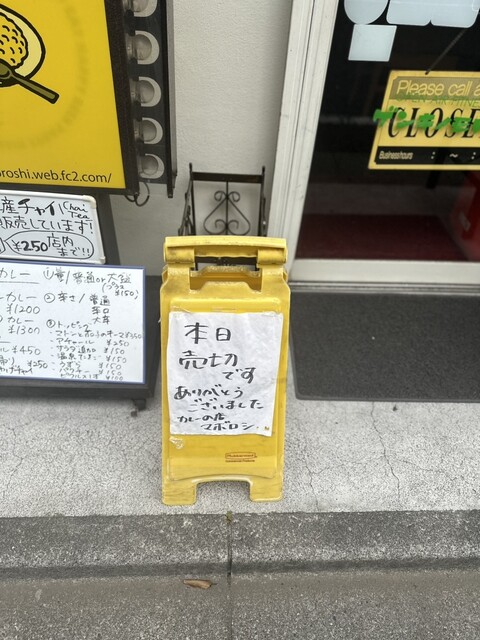 oroshi.web.fc2.com/
Please call a
CLOSE
Business hours : ~ :
産チャイ Chai Tea
販売しています!
¥250 店内まで!!
カレー
カレー
¥1200
カレー
¥1300
¥450
¥250
① 量/普通or大盛
(プラス¥150)
② 辛さ/普通
辛口
大辛
③ トッピング
・アチャール ¥250
・サラダ追加 ¥150
・温泉たまご ¥150
・パクチー ¥150
本日
売切
です
ありがとう
ございました
カレーの店
マボロシ
Rubbermaid